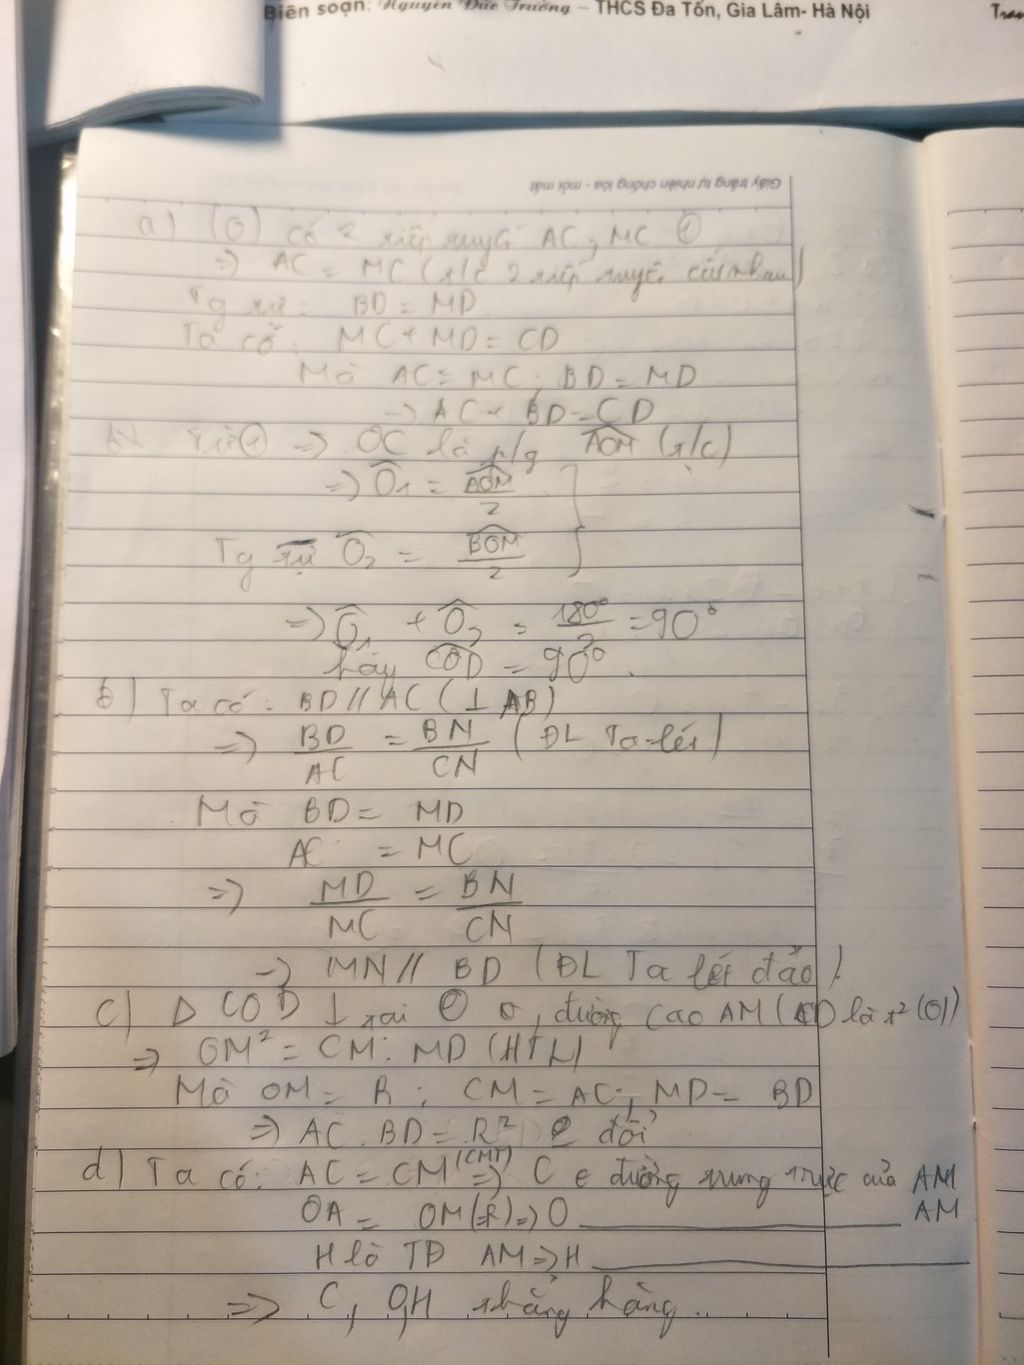 Biên soạn: Nguyễn Đức Trường – THCS Đa Tốn, Gia Lâm- Hà Nội
Giấy trắng tự nhiên chống lóa - mỏi mắt
a) (O) có 2 tiếp tuyến AC, MC ①
=> AC = MC (t/c 2 tiếp tuyến cắt nhau)
Tg tự: BD = MD
Ta có: MC + MD = CD
Mà AC = MC; BD = MD
=> AC + BD = CD
Từ ① => OC là p/g AOM (t/c)
=> O1 = AOM/2
Tg tự O2 = BOM/2
=> O1 + O2 = 180°/2 = 90°
hay COD = 90°.
b) Ta có: BD // AC (⊥ AB)
=> BD/AC = BN/CN (ĐL Ta-lét)
Mà BD = MD
AC = MC
=> MD/MC = BN/CN
=> MN // BD (ĐL Ta lét đảo)
c) Δ COD ⊥ tại O, đường cao AM (CD là t² (O))
=> OM² = CM. MD (HTL)
Mà OM = R; CM = AC; MD = BD
=> AC. BD = R² đổi
d) Ta có: AC = CM (CMT) => C ∈ đường trung trực của AM
OA = OM (=R) => O AM
H là TĐ AM => H
=> C, O, H thẳng hàng.